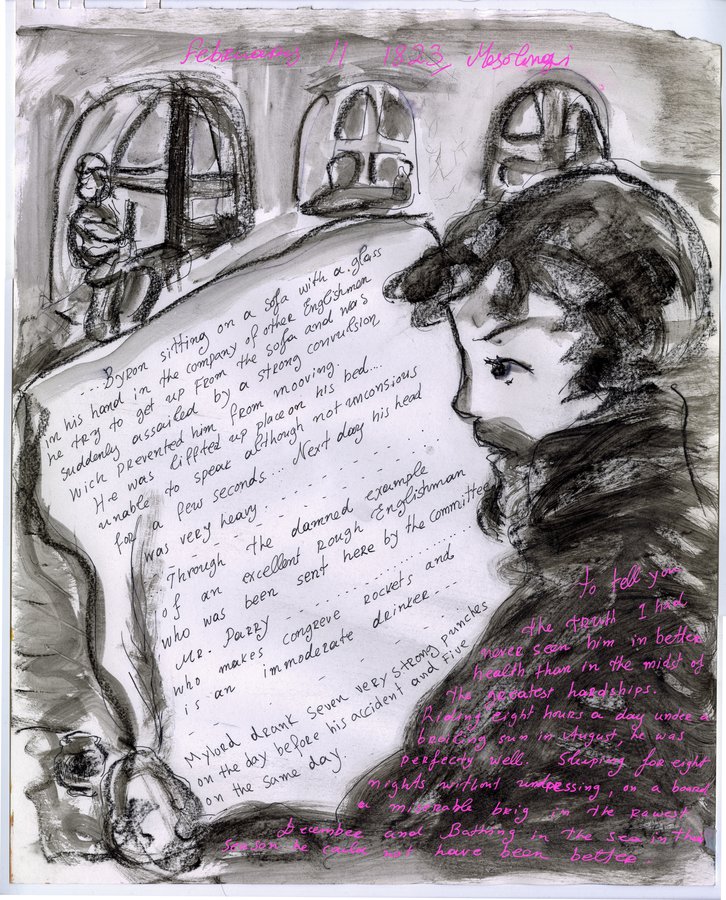 February 11 1823 Mesolongi
....Byron sitting on a sofa with a glass
in his hand in the company of other Englishmen
he try to get up from the sofa and was
suddenly assailed by a strong convulsion
wich prevented him from mooving.
He was liffted up place on his bed....
unable to speak although not unconsious
for a few seconds.... Next day his head
was very heavy
Through the damned example
of an excellent rough Englishman
who was been sent here by the Committee
Mr. Parry
who makes congreve rockets and
is an immoderate drinker....
Mylord drank seven very strong punches
on the day before his accident and five
on the same day.
to tell you
the truth I had
never seen him in better
health than in the midst of
the greatest hardships.
Riding eight hours a day under a
broiling sun in August, he was
perfecty well. Sleeping for eight
nights without undressing, on a board
a miserable brig in the rawest
December and Bathing in the sea in that
season he could not have been better